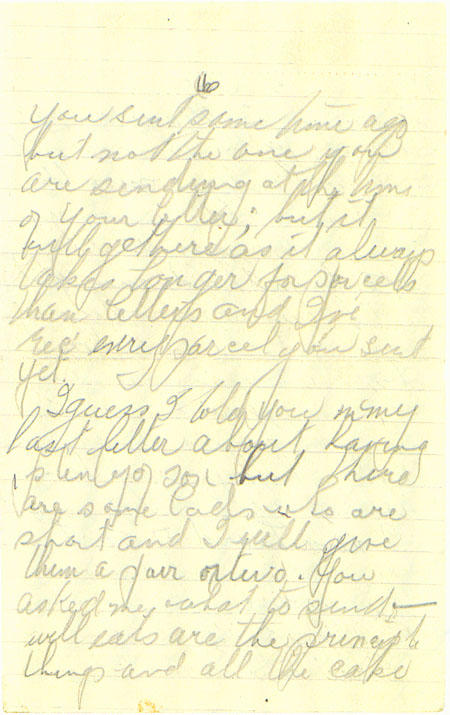 16
you sent some time ago
but not the one you
are sending at the time
of your letter; but it
will get here as it always
takes longer for parcels
than letters and I've
rec' every parcel you sent
yet.
I guess I told you in my
last letter about having
plenty of sox but there
are some lads who are
short and I will give
them a pair or two. You
asked me what to send –
well eats are the principle
things and all the cake